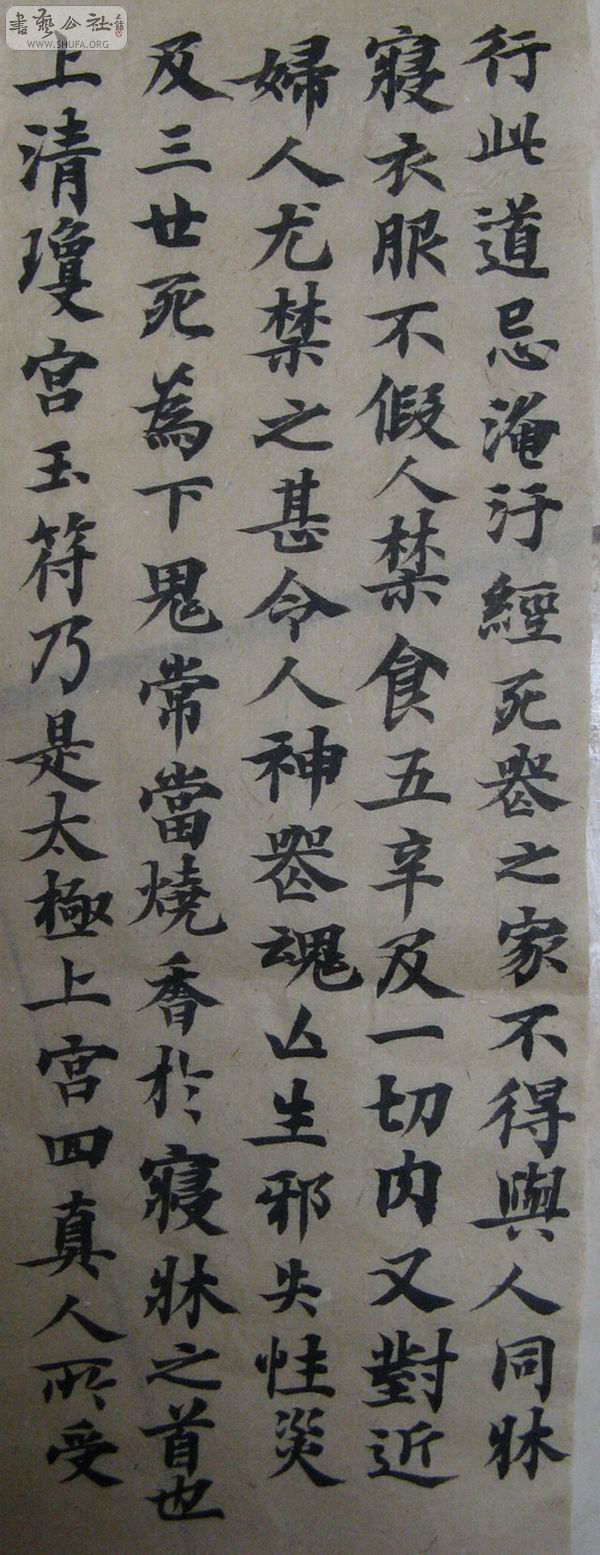 行此道忌淹汙經死器之家不得與人同牀
寢衣服不假人禁食五辛及一切肉又對近
婦人尤禁之甚令人神器魂亾生邪失性災
及三世死為下鬼常當燒香於寢牀之首也
上清瓊宮玉符乃是太極上宮四真人所受
書藝公社
WWW.SHUFA.ORG